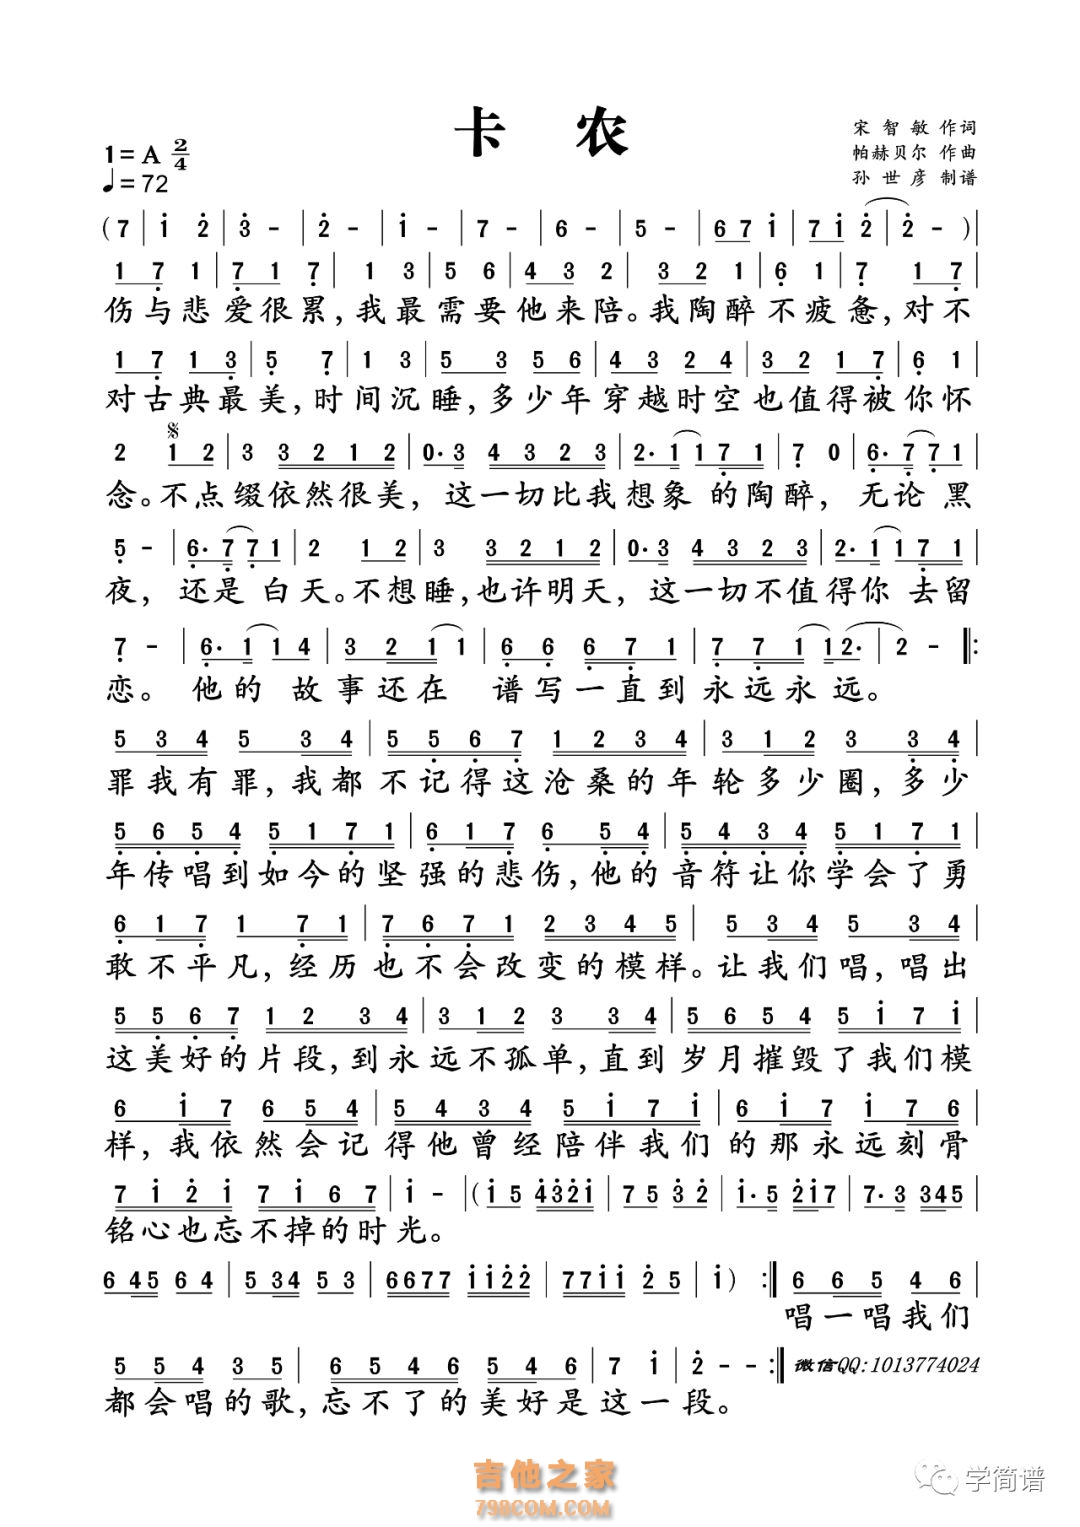 卡 农
宋 智 敏 作词
帕赫贝尔 作曲
孙 世 彦 制谱
1=A 2/4
♩=72
(7 | i 2 | 3 - | 2 - | i - | 7 - | 6 - | 5 - | 6 7 i | 7 i 2 | 2 - ) |
1 7 1 | 7 1 7 | 1 3 | 5 6 | 4 3 2 | 3 2 1 | 6 1 | 7 1 7 |
伤与悲爱很累,我最需要他来陪。我陶醉不疲惫,对不
1 7 1 3 | 5 7 | 1 3 | 5 3 5 6 | 4 3 2 4 | 3 2 1 7 | 6 1 |
对古典最美,时间沉睡,多少年穿越时空也值得被你怀
2 1 2 | 3 3 2 1 2 | 0· 3 4 3 2 3 | 2· 1 1 7 1 | 7 0 | 6· 7 7 1 |
念。不点缀依然很美，这一切比我想象的陶醉，无论黑
5 - | 6· 7 7 1 | 2 1 2 | 3 3 2 1 2 | 0· 3 4 3 2 3 | 2· 1 1 7 1 |
夜，还是白天。不想睡,也许明天，这一切不值得你去留
7 - | 6· 1 1 4 | 3 2 1 1 | 6 6 6 7 1 | 7 7 1 1 2· | 2 - ‖:
恋。他的故事还在 谱写一直到永远永远。
5 3 4 5 3 4 | 5 5 6 7 1 2 3 4 | 3 1 2 3 3 4 |
罪我有罪,我都不记得这沧桑的年轮多少圈,多少
5 6 5 4 5 1 7 1 | 6 1 7 6 5 4 | 5 4 3 4 5 1 7 1 |
年传唱到如今的坚强的悲伤,他的音符让你学会了勇
6 1 7 1 7 1 | 7 6 7 1 2 3 4 5 | 5 3 4 5 3 4 |
敢不平凡,经历也不会改变的模样。让我们唱,唱出
5 5 6 7 1 2 3 4 | 3 1 2 3 3 4 | 5 6 5 4 5 i 7 i |
这美好的片段,到永远不孤单,直到岁月摧毁了我们模
6 i 7 6 5 4 | 5 4 3 4 5 i 7 i | 6 i 7 i 7 6 |
样,我依然会记得他曾经陪伴我们的那永远刻骨
7 i 2 i 7 i 6 7 | i - | (i 5 4321 | 7 5 3 2 | i· 5 2 i 7 | 7· 3 345 |
铭心也忘不掉的时光。
6 45 6 4 | 5 34 5 3 | 6677 ii22 | 77ii 2 5 | i ) :‖ 6 6 5 4 6 |
唱一唱我们
5 5 4 3 5 | 6 5 4 6 5 4 6 | 7 i | 2 - - :‖ 微信QQ:1013774024
都会唱的歌,忘不了的美好是这一段。
吉他之家
798COM.COM
学简谱